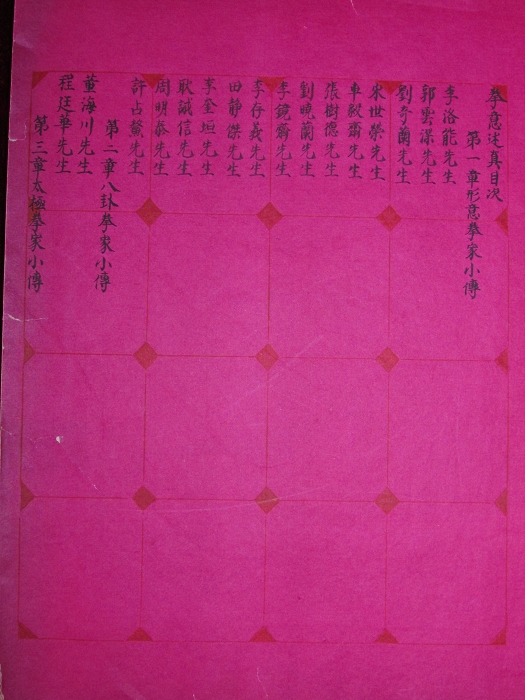 拳意述真目次
第一章形意拳家小傳
李洛能先生
郭雲深先生
劉奇蘭先生
宋世榮先生
車毅齋先生
張樹德先生
劉曉蘭先生
李鏡齋先生
李存義先生
田靜傑先生
李奎垣先生
耿誠信先生
周明泰先生
許占鰲先生
第二章八卦拳家小傳
董海川先生
程廷華先生
第三章太極拳家小傳